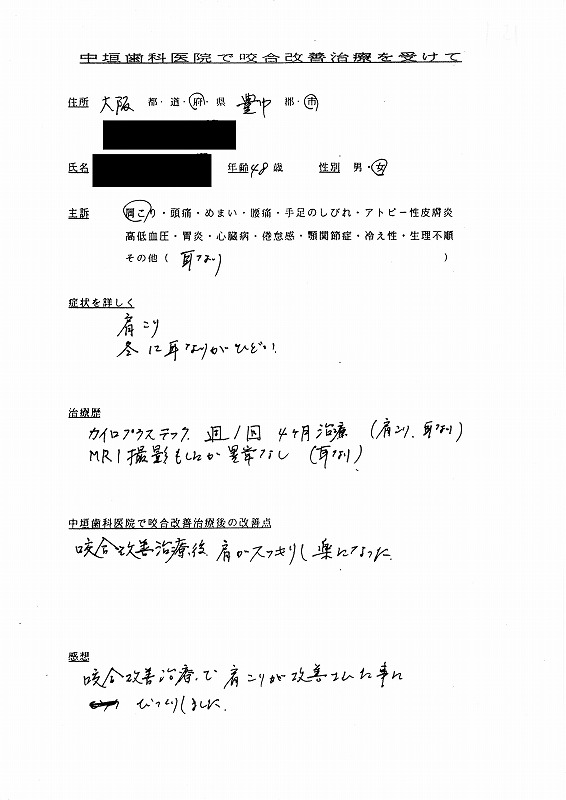 中垣歯科医院で咬合改善治療を受けて
住所 大阪 都・道・府・県 豊中 郡・市
氏名 年齢 48 歳 性別 男・女
主訴 肩こり・頭痛・めまい・腰痛・手足のしびれ・アトピー性皮膚炎
高低血圧・胃炎・心臓病・倦怠感・顎関節症・冷え性・生理不順
その他( 耳なり )
症状を詳しく
肩こり
冬に耳なりがひどい
治療歴
カイロプラステック 週1回 4ヶ月治療 (肩こり、耳なり)
MRI撮影もしたが異常なし (耳なり)
中垣歯科医院で咬合改善治療後の改善点
咬合改善治療後 肩がスッキリし楽になった
感想
咬合改善治療で肩こりが改善された事に
びっくりしました。